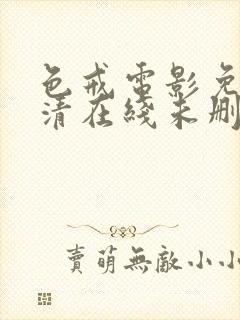 色戒電影免
清在綫未刪
賣萌無敵小小